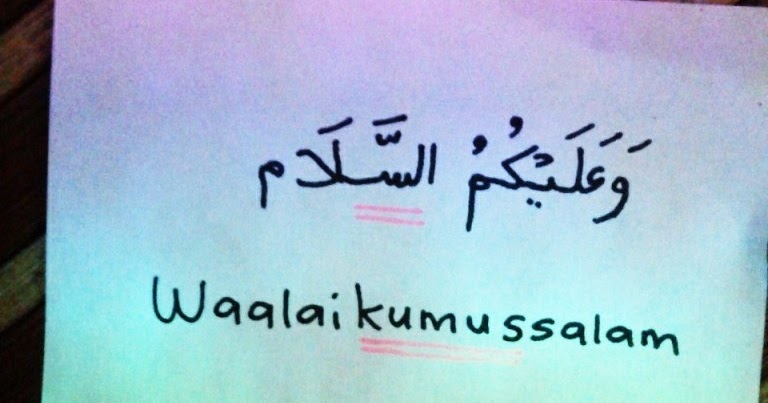 وَعَلَيْكُمُ السَّلَام
Waalaikumussalam